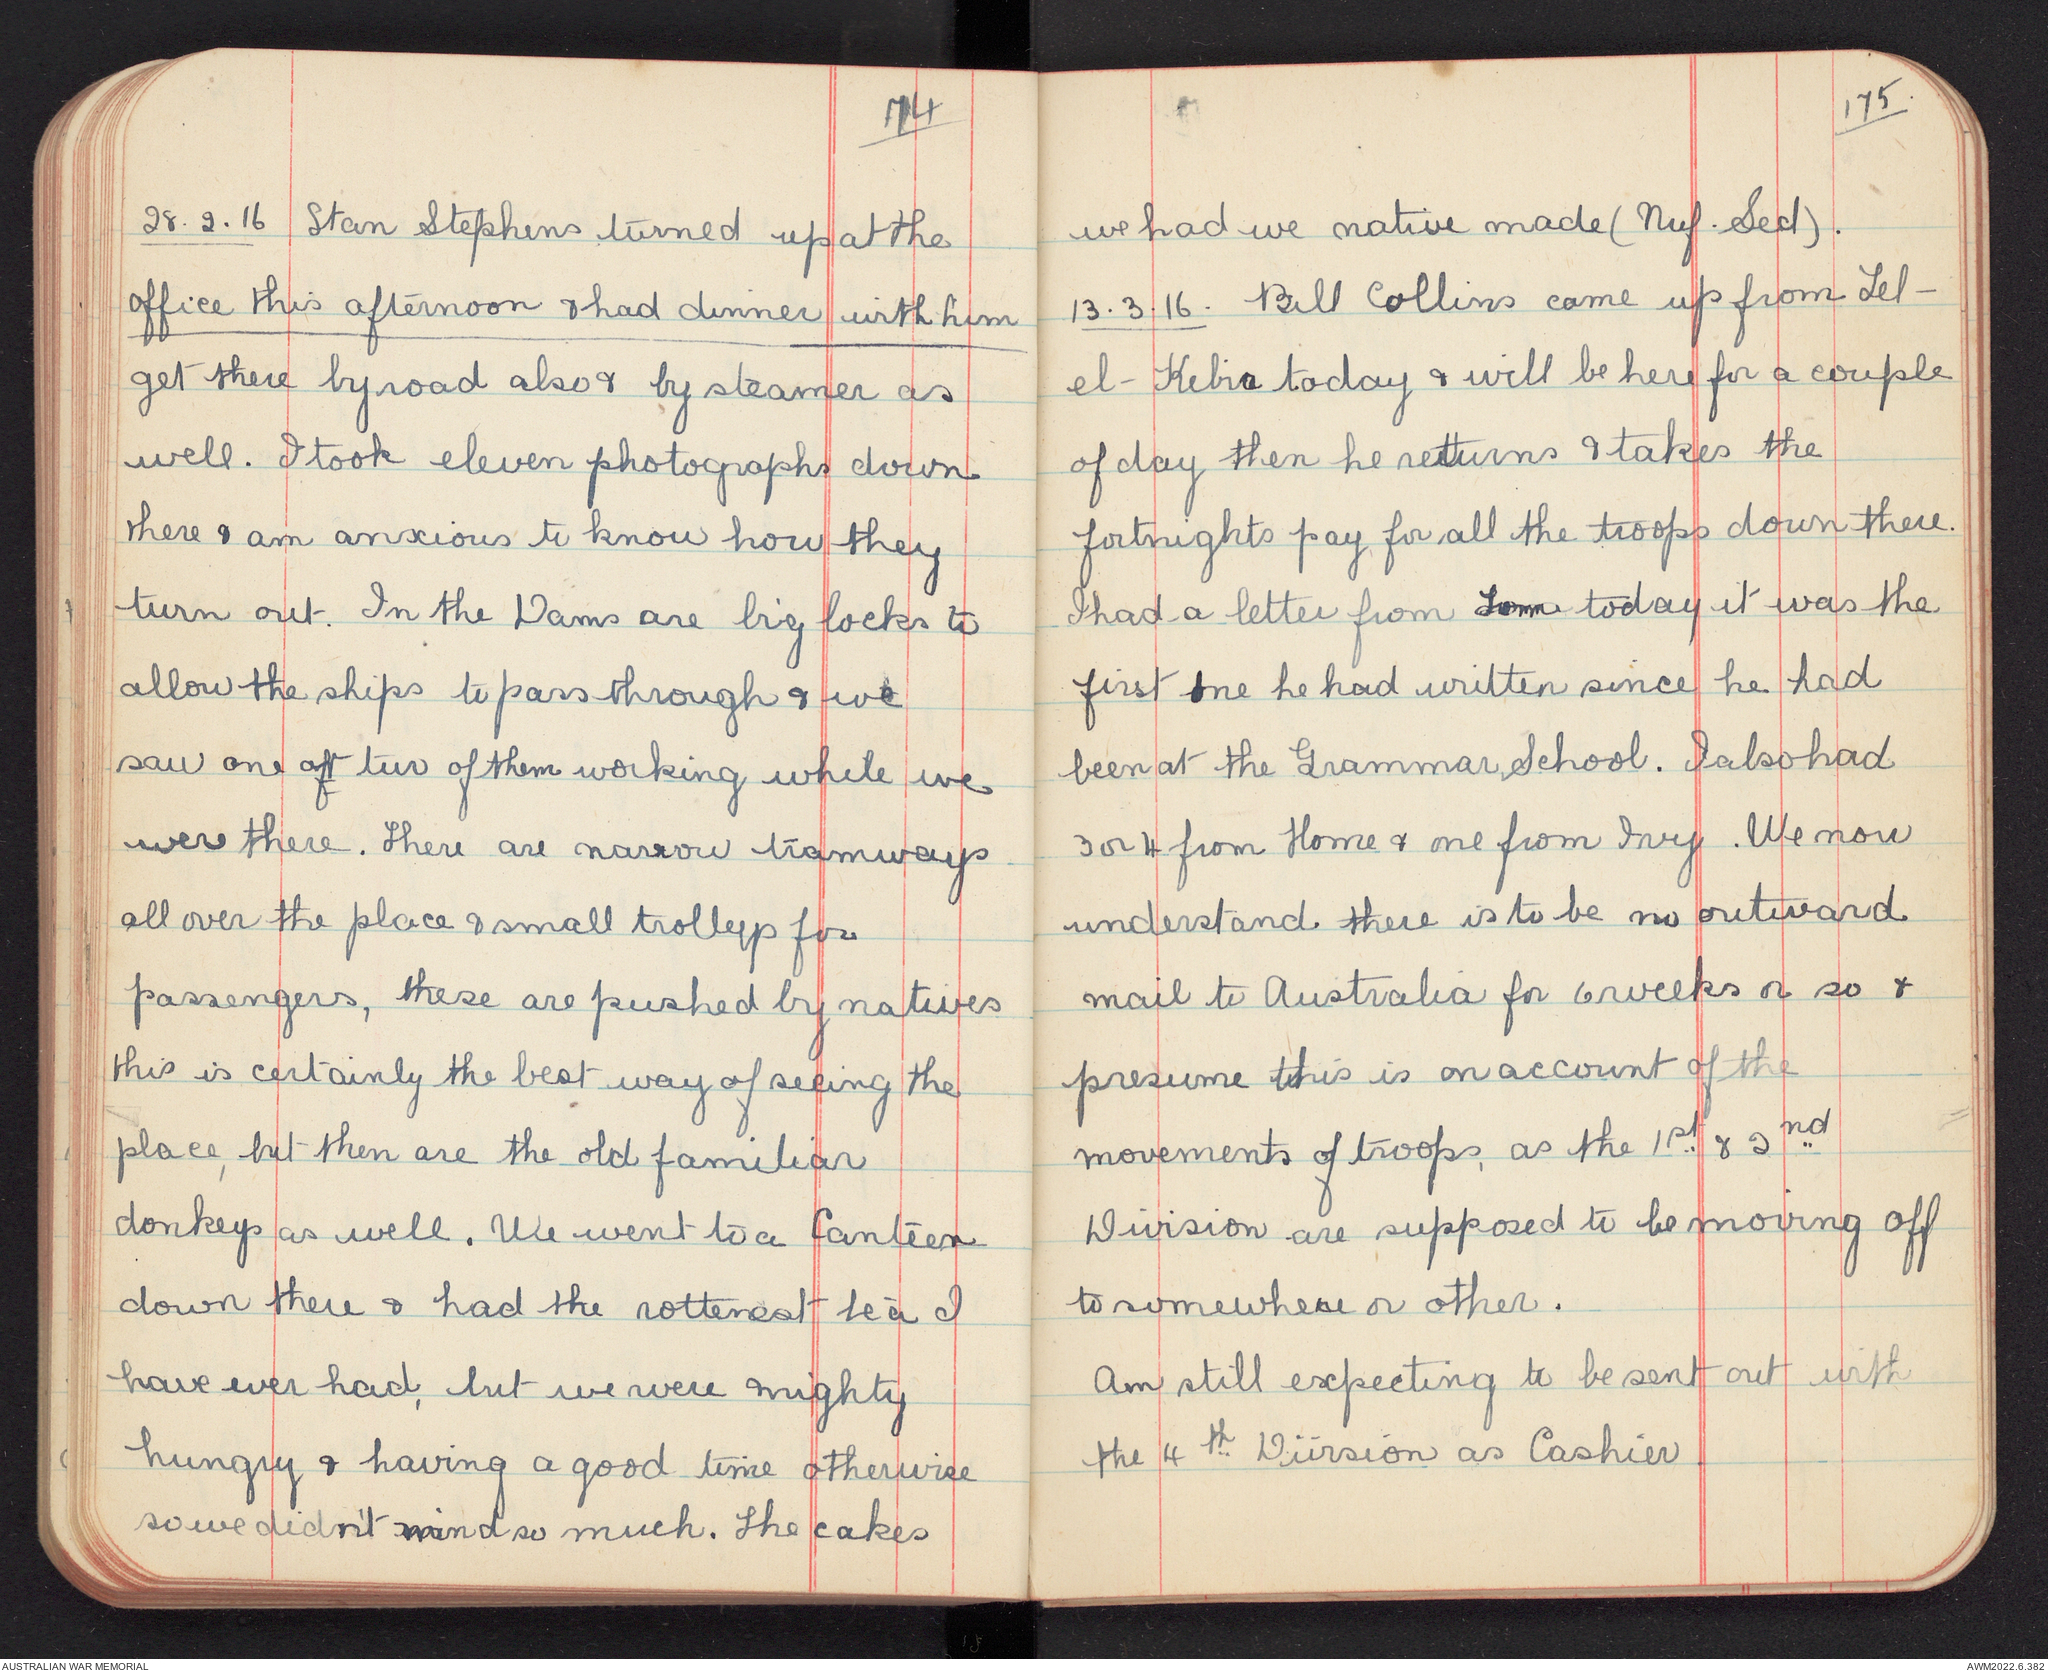 174
28.2.16 Stan Stephens turned up at the
office this afternoon & had dinner with him
get there by road also & by steamer as
well. I took eleven photographs down
there & am anxious to know how they
turn out. In the Dams are big locks to
allow the ships to pass through & we
saw one oft two of them working while we
were there. There are narrow tramways
all over the place & small trolleys for
passengers, these are pushed by natives
this is certainly the best way of seeing the
place, but then are the old familiar
donkeys as well. We went to a Canteen
down there & had the rottenest tea I
have ever had, but we were mighty
hungry & having a good time otherwise
so we didn't mind so much. The cakes
175.
we had we native made (Nuf. Sed).
13.3.16. Bill Collins came up from Tel-
el-Kebia today & will be here for a couple
of day then he returns & takes the
fortnights pay for all the troops down there.
I had a letter from Tom today it was the
first one he had written since he had
been at the Grammar School. I also had
3 or 4 from Home & one from Ivy. We now
understand there is to be no outward
mail to Australia for 6 weeks or so &
presume this is on account of the
movements of troops, as the 1st & 2nd
Division are supposed to be moving off
to somewhere or other.
Am still expecting to be sent out with
the 4th Division as Cashier
AUSTRALIAN WAR MEMORIAL
AWM2022.6.382